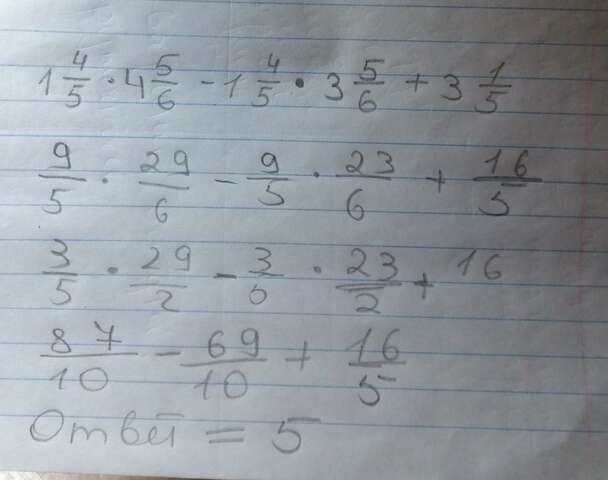 1 4/5 · 4 5/6 - 1 4/5 · 3 5/6 + 3 1/5
9/5 · 29/6 - 9/5 · 23/6 + 16/5
3/5 · 29/2 - 3/0 · 23/2 + 16
87/10 - 69/10 + 16/5
Ответ = 5